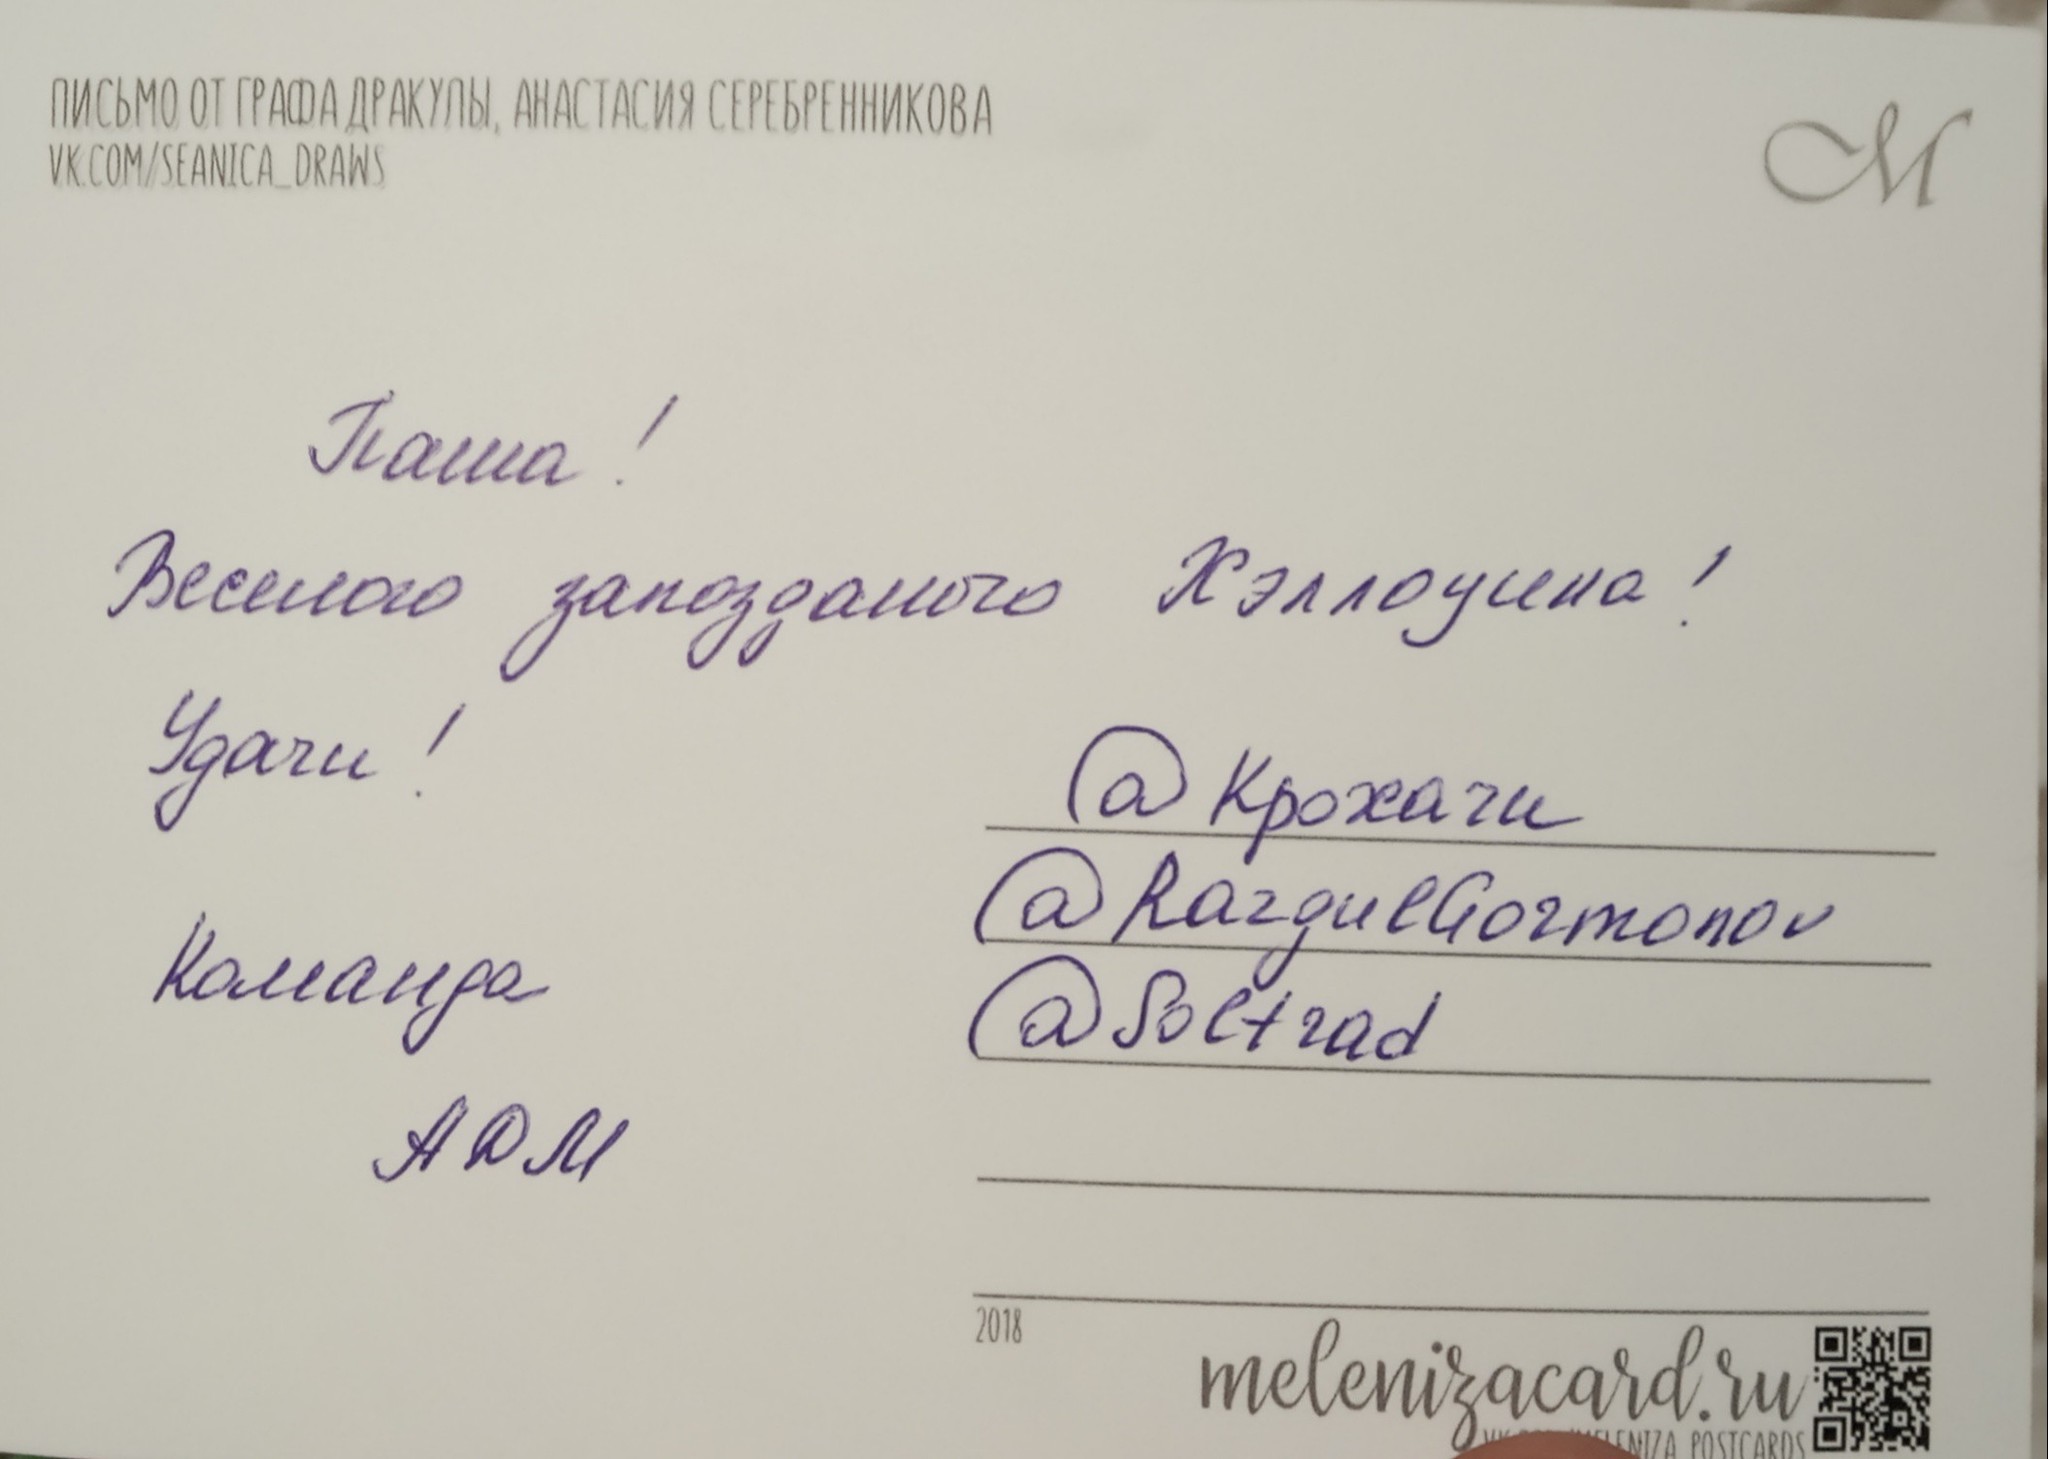 ПИСЬМО ОТ ГРАФА ДРАКУЛЫ, АНАСТАСИЯ СЕРЕБРЕННИКОВА
VK.COM/SEANICA_DRAWS
M
Паша!
Веселого запозданого Хэллоуина!
Удачи!
@Крохачи
@RazgulGormonov
@Soltrad
Команда
АДМ
2018
melenizacard.ru
MELENIZA_POSTCARDS